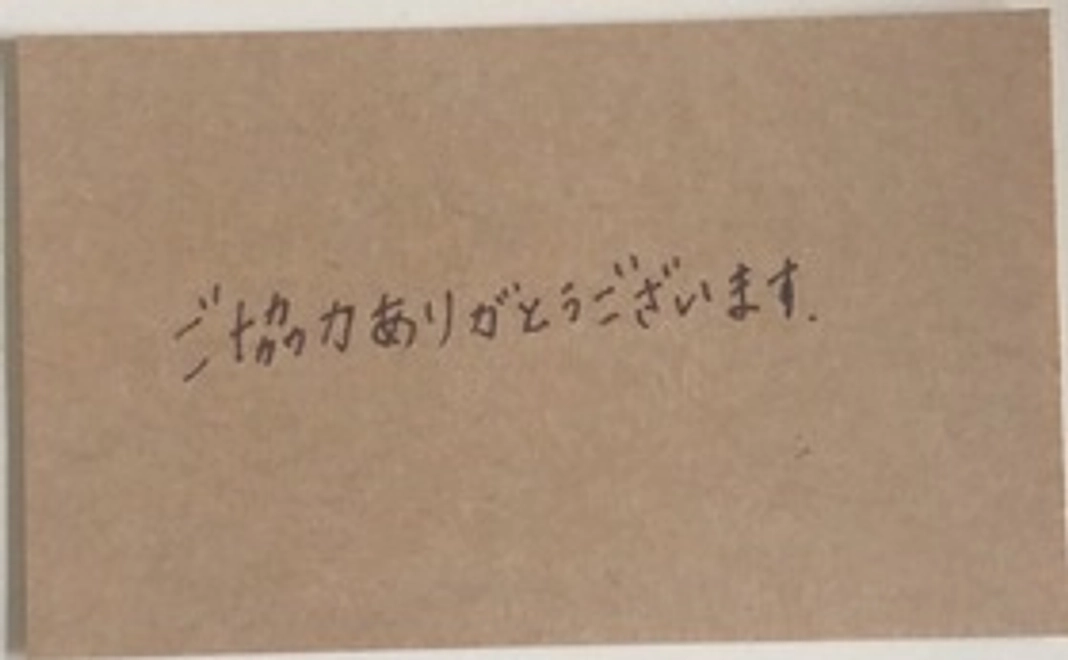 ご協力ありがとうございます.